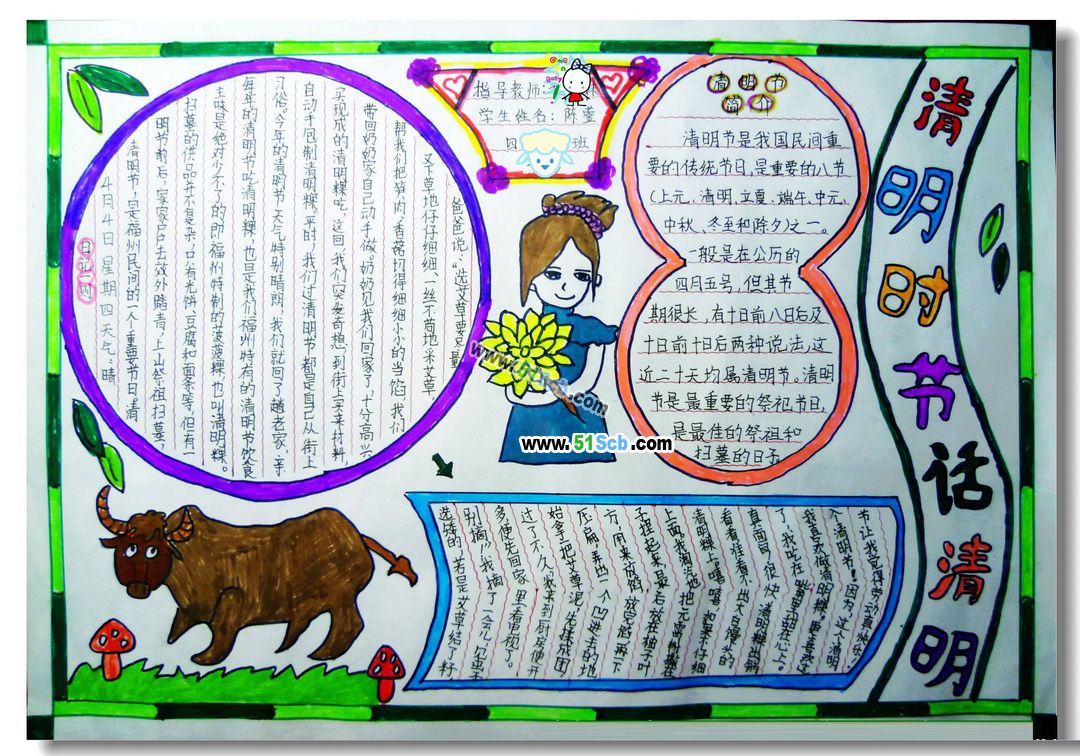 清明时节话清明
指导教师:
学生姓名:陈
四 班
日记一则
4月4日 星期四 天气:晴
清明节,是福州民间的一个重要节日。清
明节前后,家家户户去效外踏青,上山祭祖扫墓,
扫墓的供品并不复杂,只有光饼、豆腐和面条等,但有一
主味是绝对少不了的,即福州特制的菠菠粿,也叫清明粿。
每年的清明节吃清明粿,也是我们福州特有的清明节饮食
习俗。今年的清明节天气特别晴朗,我们就回了趟老家,亲
自动手包制清明粿。平时,我们过清明节都是自己从街上
买现成的清明粿吃,这回,我们突发奇想,到街上买来材料,
带回奶奶家自己动手做。奶奶见我们回家了,十分高兴
帮我们把笋肉、香菇切得细细小小的当馅,我们
又下草地仔仔细细、一丝不苟地采艾草
爸爸说:“选艾草要尽量
选矮的,若是艾草结了籽
别摘”我摘了一会儿,见虫子
多便先回家里看电视了。
过了不久,我来到厨房便开
始拿了把艾草泥先揉成团
压扁,弄出一个凹进去的地
方,用来放馅,放完馅再一下
子捏起来,最后放在粽子叶
上面。我淘气地把元宵粉撒在
清明粿。嘻嘻,如果不仔细
看看准看不出大白馒头的
真面目。很快,清明粿出锅
了,我吃在嘴里甜在心上。
我喜欢做清明粿,更喜欢过
个清明节!因为这个清明
节让我觉得劳动真快乐!
清明节
简介
清明节是我国民间重
要的传统节日,是重要的八节
(上元、清明、立夏、端午、中元、
中秋、冬至和除夕)之一。
一般是在公历的
四月五号,但其节
期很长,有十日前八日后及
十日前十日后两种说法,这
近二十天均属清明节。清明
节是最重要的祭祀节日,
是最佳的祭祖和
扫墓的日子
www.51Scb.com